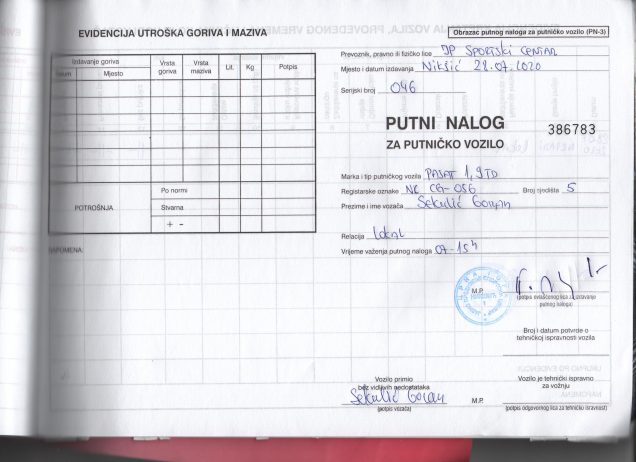 EVIDENCIJA UTROŠKA GORIVA I MAZIVA
Izdavanje goriva
Datum Mjesto
Vrsta goriva
Vrsta maziva
Lit.
Kg
Potpis
POTROŠNJA
Po normi
Stvarna
+ -
NAPOMENA:
Obrazac putnog naloga za putničko vozilo (PN-3)
Prevoznik, pravno ili fizičko lice JP SPORTSKI CENTAR
Mjesto i datum izdavanja Nikšić 28.07.2020
Serijski broj 046
PUTNI NALOG
ZA PUTNIČKO VOZILO
386783
Marka i tip putničkog vozila PASAT 1,9TD
Registarske oznake NK CG-056 Broj sjedišta 5
Prezime i ime vozača Sekulić Goran
Relacija Lokal
Vrijeme važenja putnog naloga 07-15h
M.P.
(potpis ovlašćenog lica za izdavanje
putnog naloga)
Broj i datum potvrde o
tehničkoj ispravnosti vozila
Vozilo primio
bez vidljivih nedostataka
Sekulić Goran
(potpis vozača)
Vozilo je tehnički ispravno
za vožnju
M.P.
(potpis odgovornog lica za tehničku ispravnost)